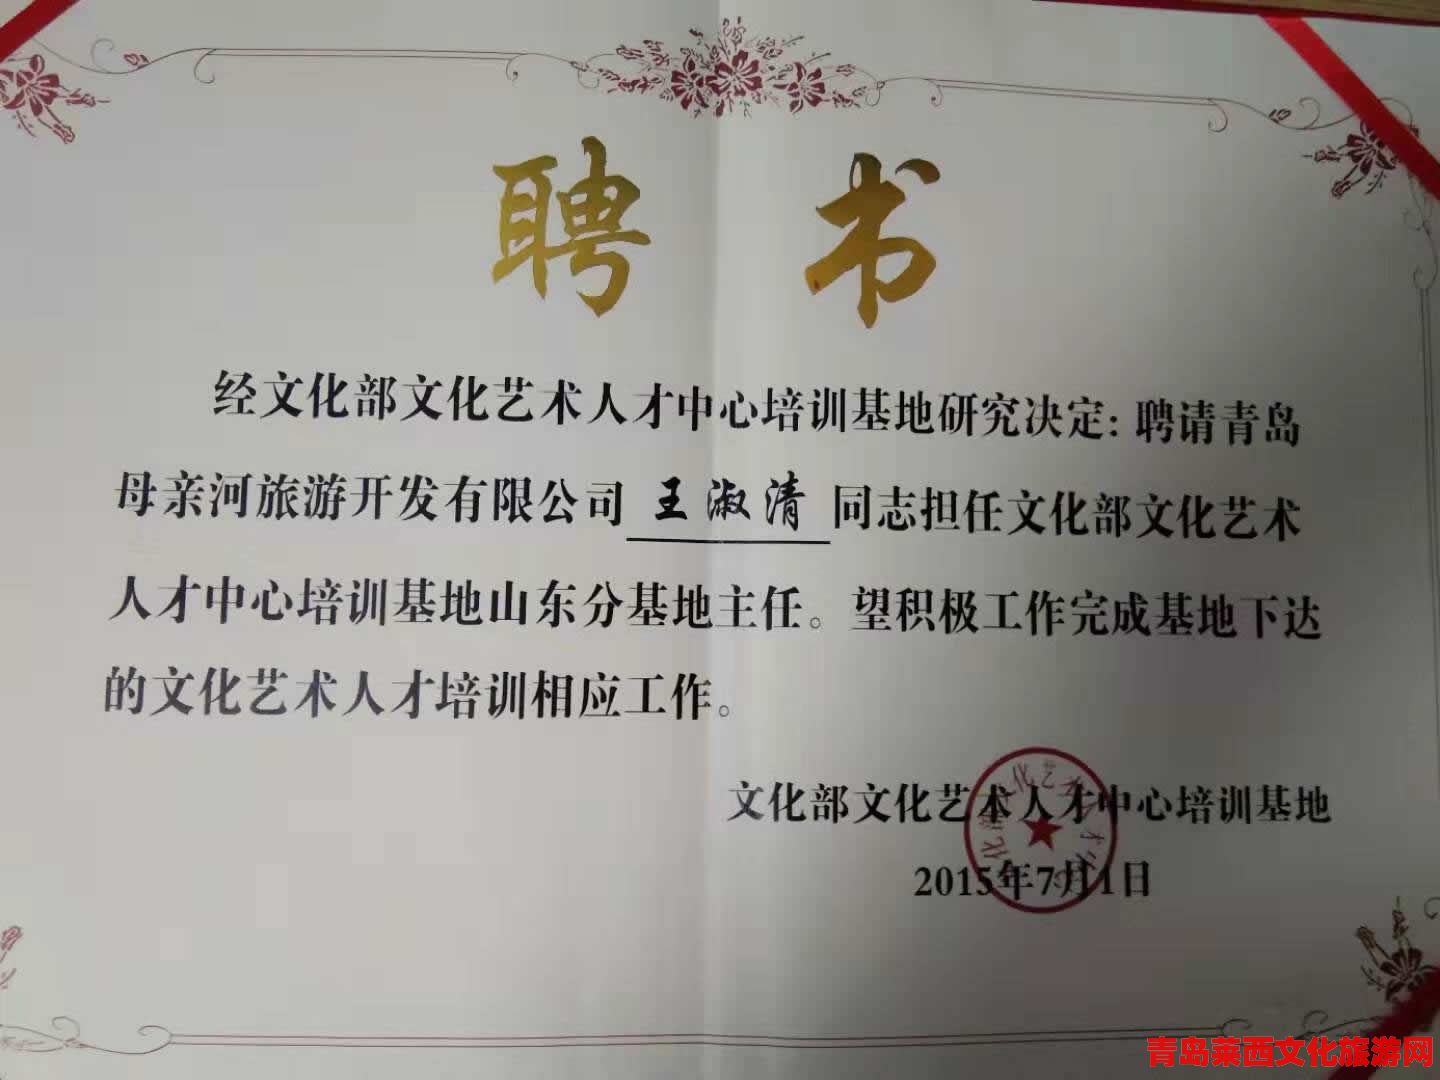 聘书
经文化部文化艺术人才中心培训基地研究决定：聘请青岛
母亲河旅游开发有限公司 王淑清 同志担任文化部文化艺术
人才中心培训基地山东分基地主任。望积极工作完成基地下达
的文化艺术人才培训相应工作。
文化部文化艺术人才中心培训基地
2015年7月1日
青岛莱西文化旅游网